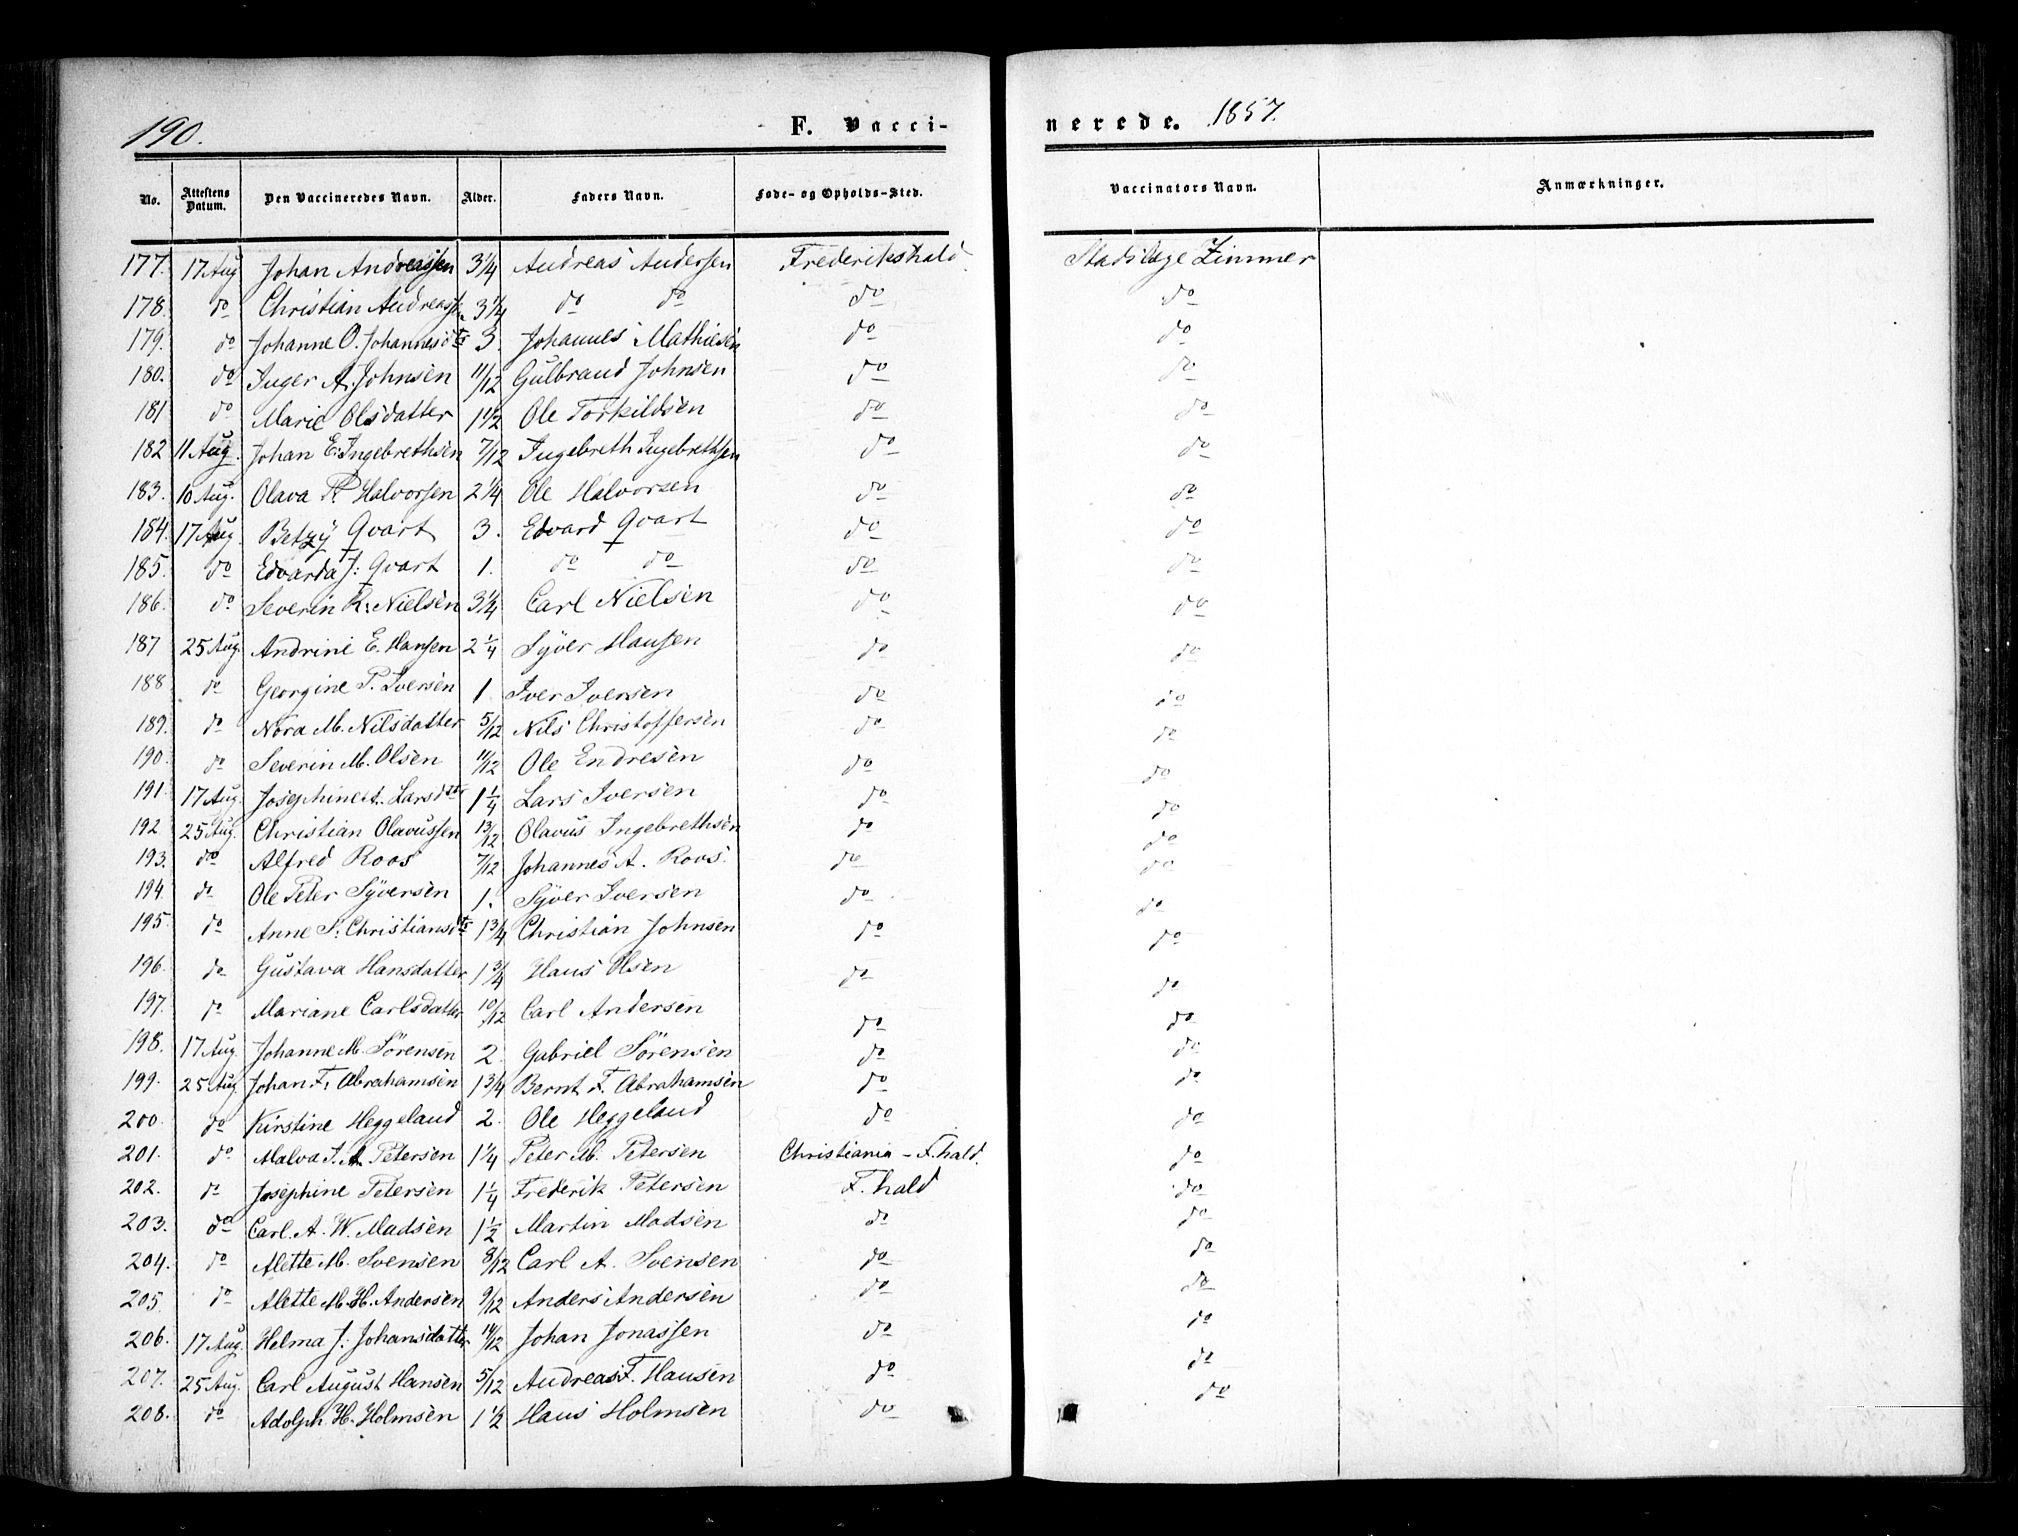 190.
F. Vacci-
nerede. 1857.
No. Attestens Datum. Den Vaccineredes Navn. Alder. Faders Navn. Føde- og Opholds-Sted. Vaccinators Navn. Anmærkninger.
177. 17 Aug Johan Andreassen 3/4 Andreas Andersen Frederikshald Stadslæge Zimmer
178. do Christian Andreass. 3 1/4 do do do do
179. do Johanne O. Johannesdtr 3. Johannes Mathiesen do do
180. do Inger A. Johnsen 11/12 Gulbrand Johnsen do do
181 do Marie Olsdatter 1 1/2 Ole Torkildsen do do
182 11 Aug. Johan E. Ingebrethsen 7/12 Ingebreth Ingebrethsen do do
183. 10 Aug. Olava P. Halvorsen 2 1/4 Ole Halvorsen do do
184. 17 Aug. Betzy Qvart 3. Edvard Qvart do do
185. do Edvarda J: Qvart 1. do do do do
186. do Severin R: Nielsen 3 1/4 Carl Nielsen do do
187 25 Aug. Andrine E. Hansen 2 1/4 Syver Hansen do do
188 do Georgine P. Iversen 1 Iver Iversen do do
189. do Nora M. Nilsdatter 5/12 Nils Christoffersen do do
190. do Severin M. Olsen 11/12 Ole Endresen do do
191. 17 Aug. Josephine A. Larsdtr 1 1/4 Lars Iversen do do
192 25 Aug. Christian Olavussen 13/12 Olavus Ingebrethsen do do
193. do Alfred Roos 7/12 Johannes A. Roos. do do
194. do Ole Peter Syversen 1. Syver Iversen do do
195. do Anne S: Christiansdtr 1 3/4 Christian Johnsen do do
196. do Gustava Hansdatter 1 3/4 Hans Olsen do do
197. do Mariane Carlsdatter 10/12 Carl Andersen do do
198. 17 Aug. Johanne M. Sörensen 2. Gabriel Sörensen do do
199. 25 Aug Johan F. Abrahamsen 1 3/4 Bernt F. Abrahamsen do do
200. do Kirstine Heggeland 2. Ole Heggeland do do
201. do Malva J. A. Petersen 1 1/4 Peter M. Petersen Christiania - F.hald. do
202. do Josephine Petersen 1 1/4 Frederik Petersen F. hald do
203. do Carl. A. W. Madsen 1 1/2 Martin Madsen do do
204. do Alette M. Svensen 8/12 Carl A. Svensen do do
205. do Alette M. H. Andersen 9/12 Anders Andersen do do
206. 17 Aug. Helma J: Johansdatter 11/12 Johan Jonassen do do
207. 25 Aug. Carl August Hansen 5/12 Andreas F. Hansen do do
208. do Adolph H. Holmsen 1 1/2 Hans Holmsen do do